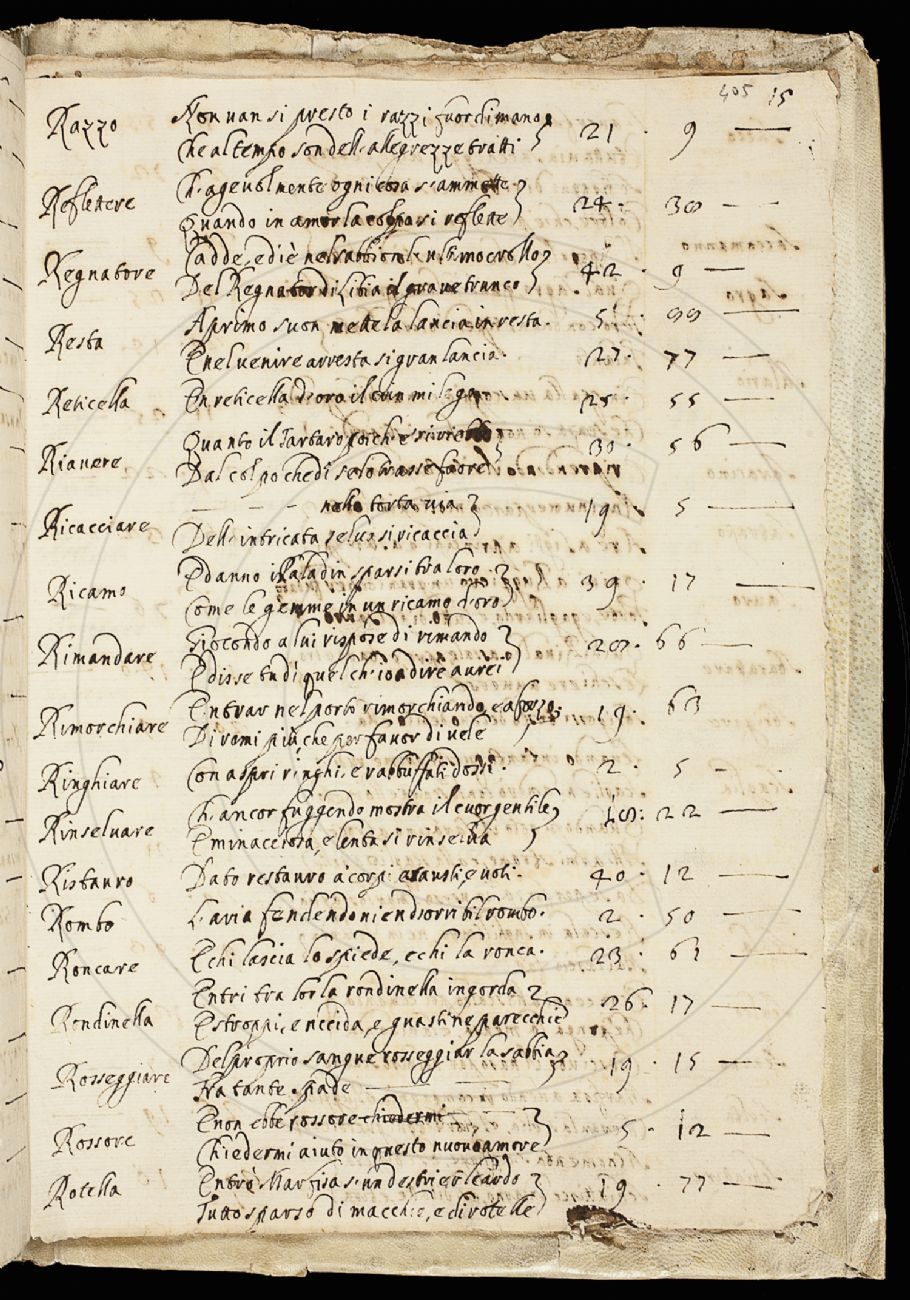 405 15
Razzo Non van si presto i razzi fuor di mano
Che al tempo son dell'allegrezze tratti 21 · 9 —
Reflettere Ch'agevolmente ogni cosa s'ammette
Quando in amor la colpa si reflette 24 · 38 —
Regnatore Cadde, e diè nel sabbion l'ultimo crollo
Del Regnator di Libia il grave trunco 42 · 9 —
Resta A primo suon mette la lancia in resta. 5 · 99 —
E nel venire arresta si gran lancia. 27 · 77 —
Reticella En reticella d'oro il crin mi lego. 25 · 55 —
Riavere Quanto il Tartaro poich'e'
Dal colpo che di se lo trasse fuore 30 · 56 —
Ricacciare — — — nella torta via
Dell'intricata selva si ricaccia 19 · 5 —
Ricamo E danno i Paladin sparsi tra loro
Come le gemme in un ricamo d'oro 39 · 17 —
Rimandare Giocondo a lui rispose di rimando
E disse tu dì quel ch'io a dire aurei 28 · 66 —
Rimorchiare Entrar nel porto rimorchiando, e a forza
Di remi più, che per favor di vele 19 · 63
Ringhiare Con aspri ringhi, e rabbuffati dossi. 2 · 5 —
Rinselvare Ch'ancor fuggendo mostra il cuor gentile
E minacciosa, e lenta si rinselva 18: 22 —
Ristauro Dato restauro à corpi esausti, e voti. 40 · 12 —
Rombo L'aria fendendo vien d'orribil rombo. 2 · 50 —
Roncare E chi lascia lo spiede, e chi la ronca. 23 · 61 —
Rondinella Entri tra lor la rondinella ingorda
E stroppi, e uccida, e guasti ne parecchie 26 · 17 —
Rosseggiare Del proprio sangue rosseggiar la sabbia
Fra tante spade — — 19 · 15 —
Rossore E non ebbe rossore chiedermi
Chiedermi aiuto in questo nuovo amore 5 · 12 —
Rotella Entrò Marfisa s'un destrier leardo
Tutto sparso di macchie, e di rotelle 19 · 77 —